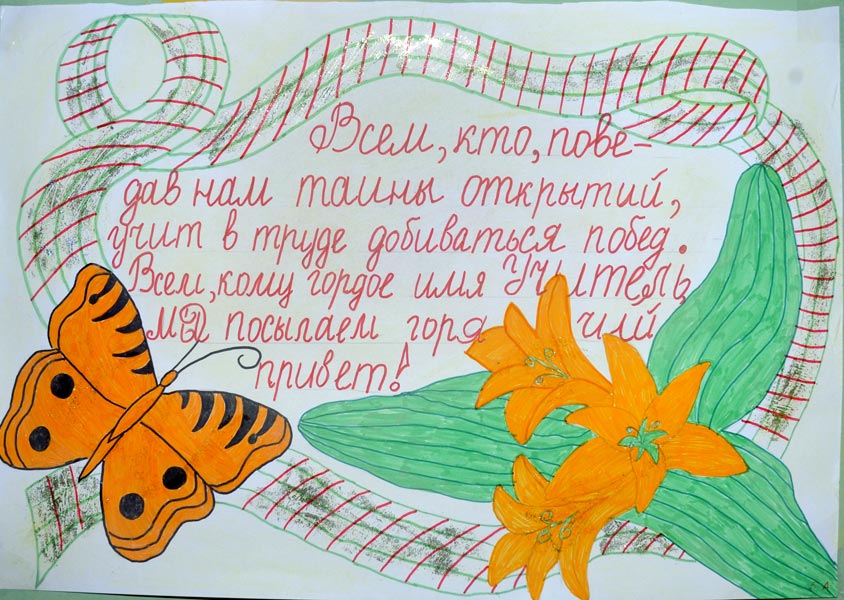 Всем, кто, пове-
дав нам таины открытий,
учит в труде добиваться побед.
Всем, кому гордое имя УЧИТЕЛЬ
МЫ посылаем горя чий
привет!